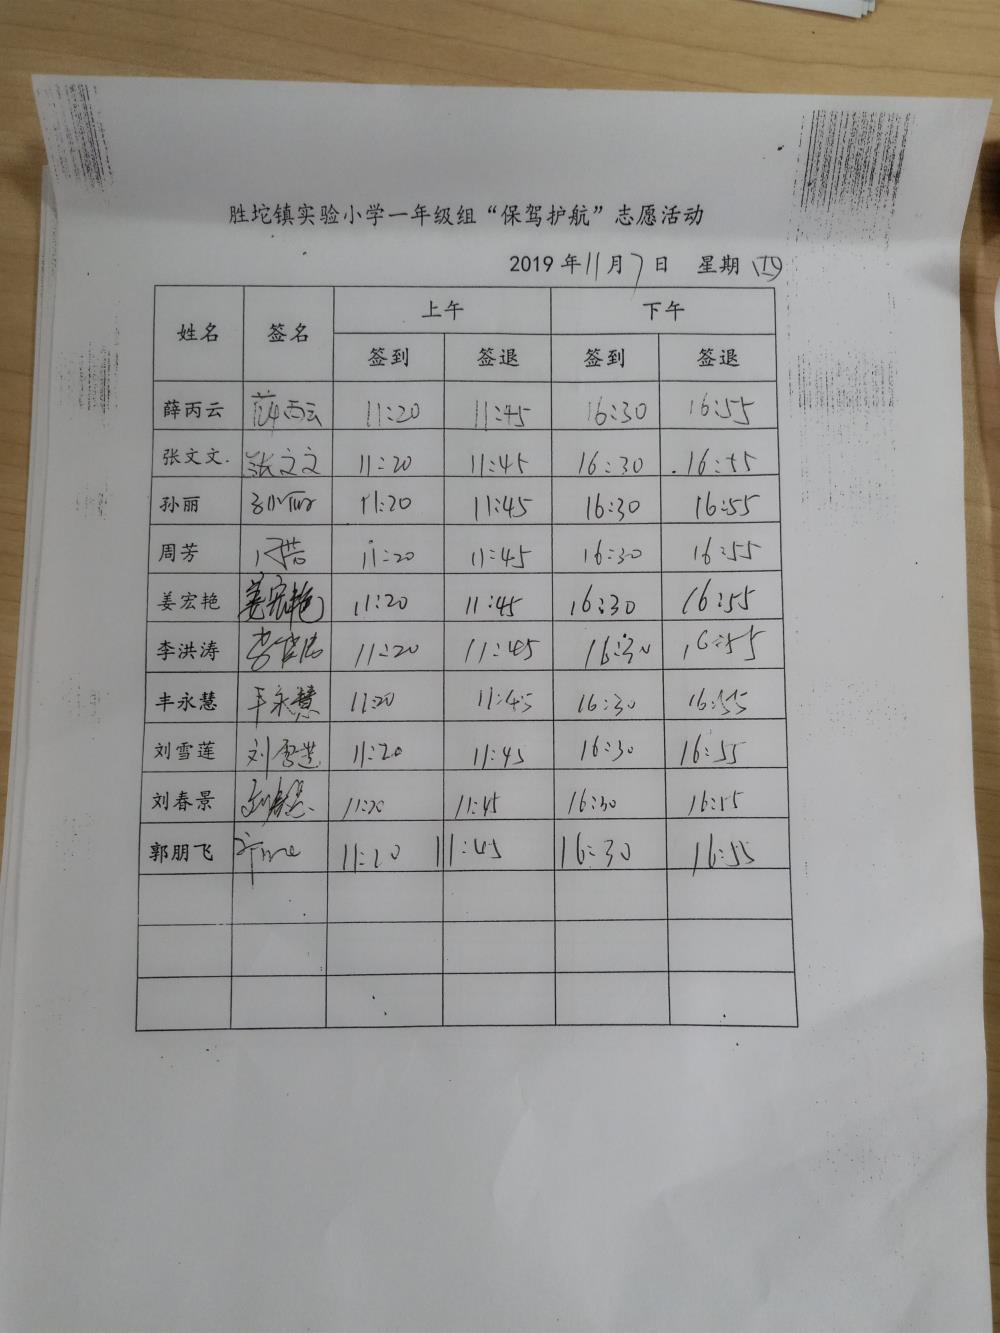 胜坨镇实验小学一年级组“保驾护航”志愿活动
2019年11月7日 星期四
姓名 签名 上午 下午
签到 签退 签到 签退
薛丙云 薛丙云 11:20 11:45 16:30 16:55
张文文. 张文文 11:20 11:45 16:30 16:55
孙丽 孙丽 11:20 11:45 16:30 16:55
周芳 11:20 11:45 16:30 16:55
姜宏艳 姜宏艳 11:20 11:45 16:30 16:55
李洪涛 李洪涛 11:20 11:45 16:30 16:55
丰永慧 丰永慧 11:20 11:45 16:30 16:55
刘雪莲 刘雪莲 11:20 11:45 16:30 16:55
刘春景 刘春景 11:20 11:45 16:30 16:55
郭朋飞 11:20 11:45 16:30 16:55